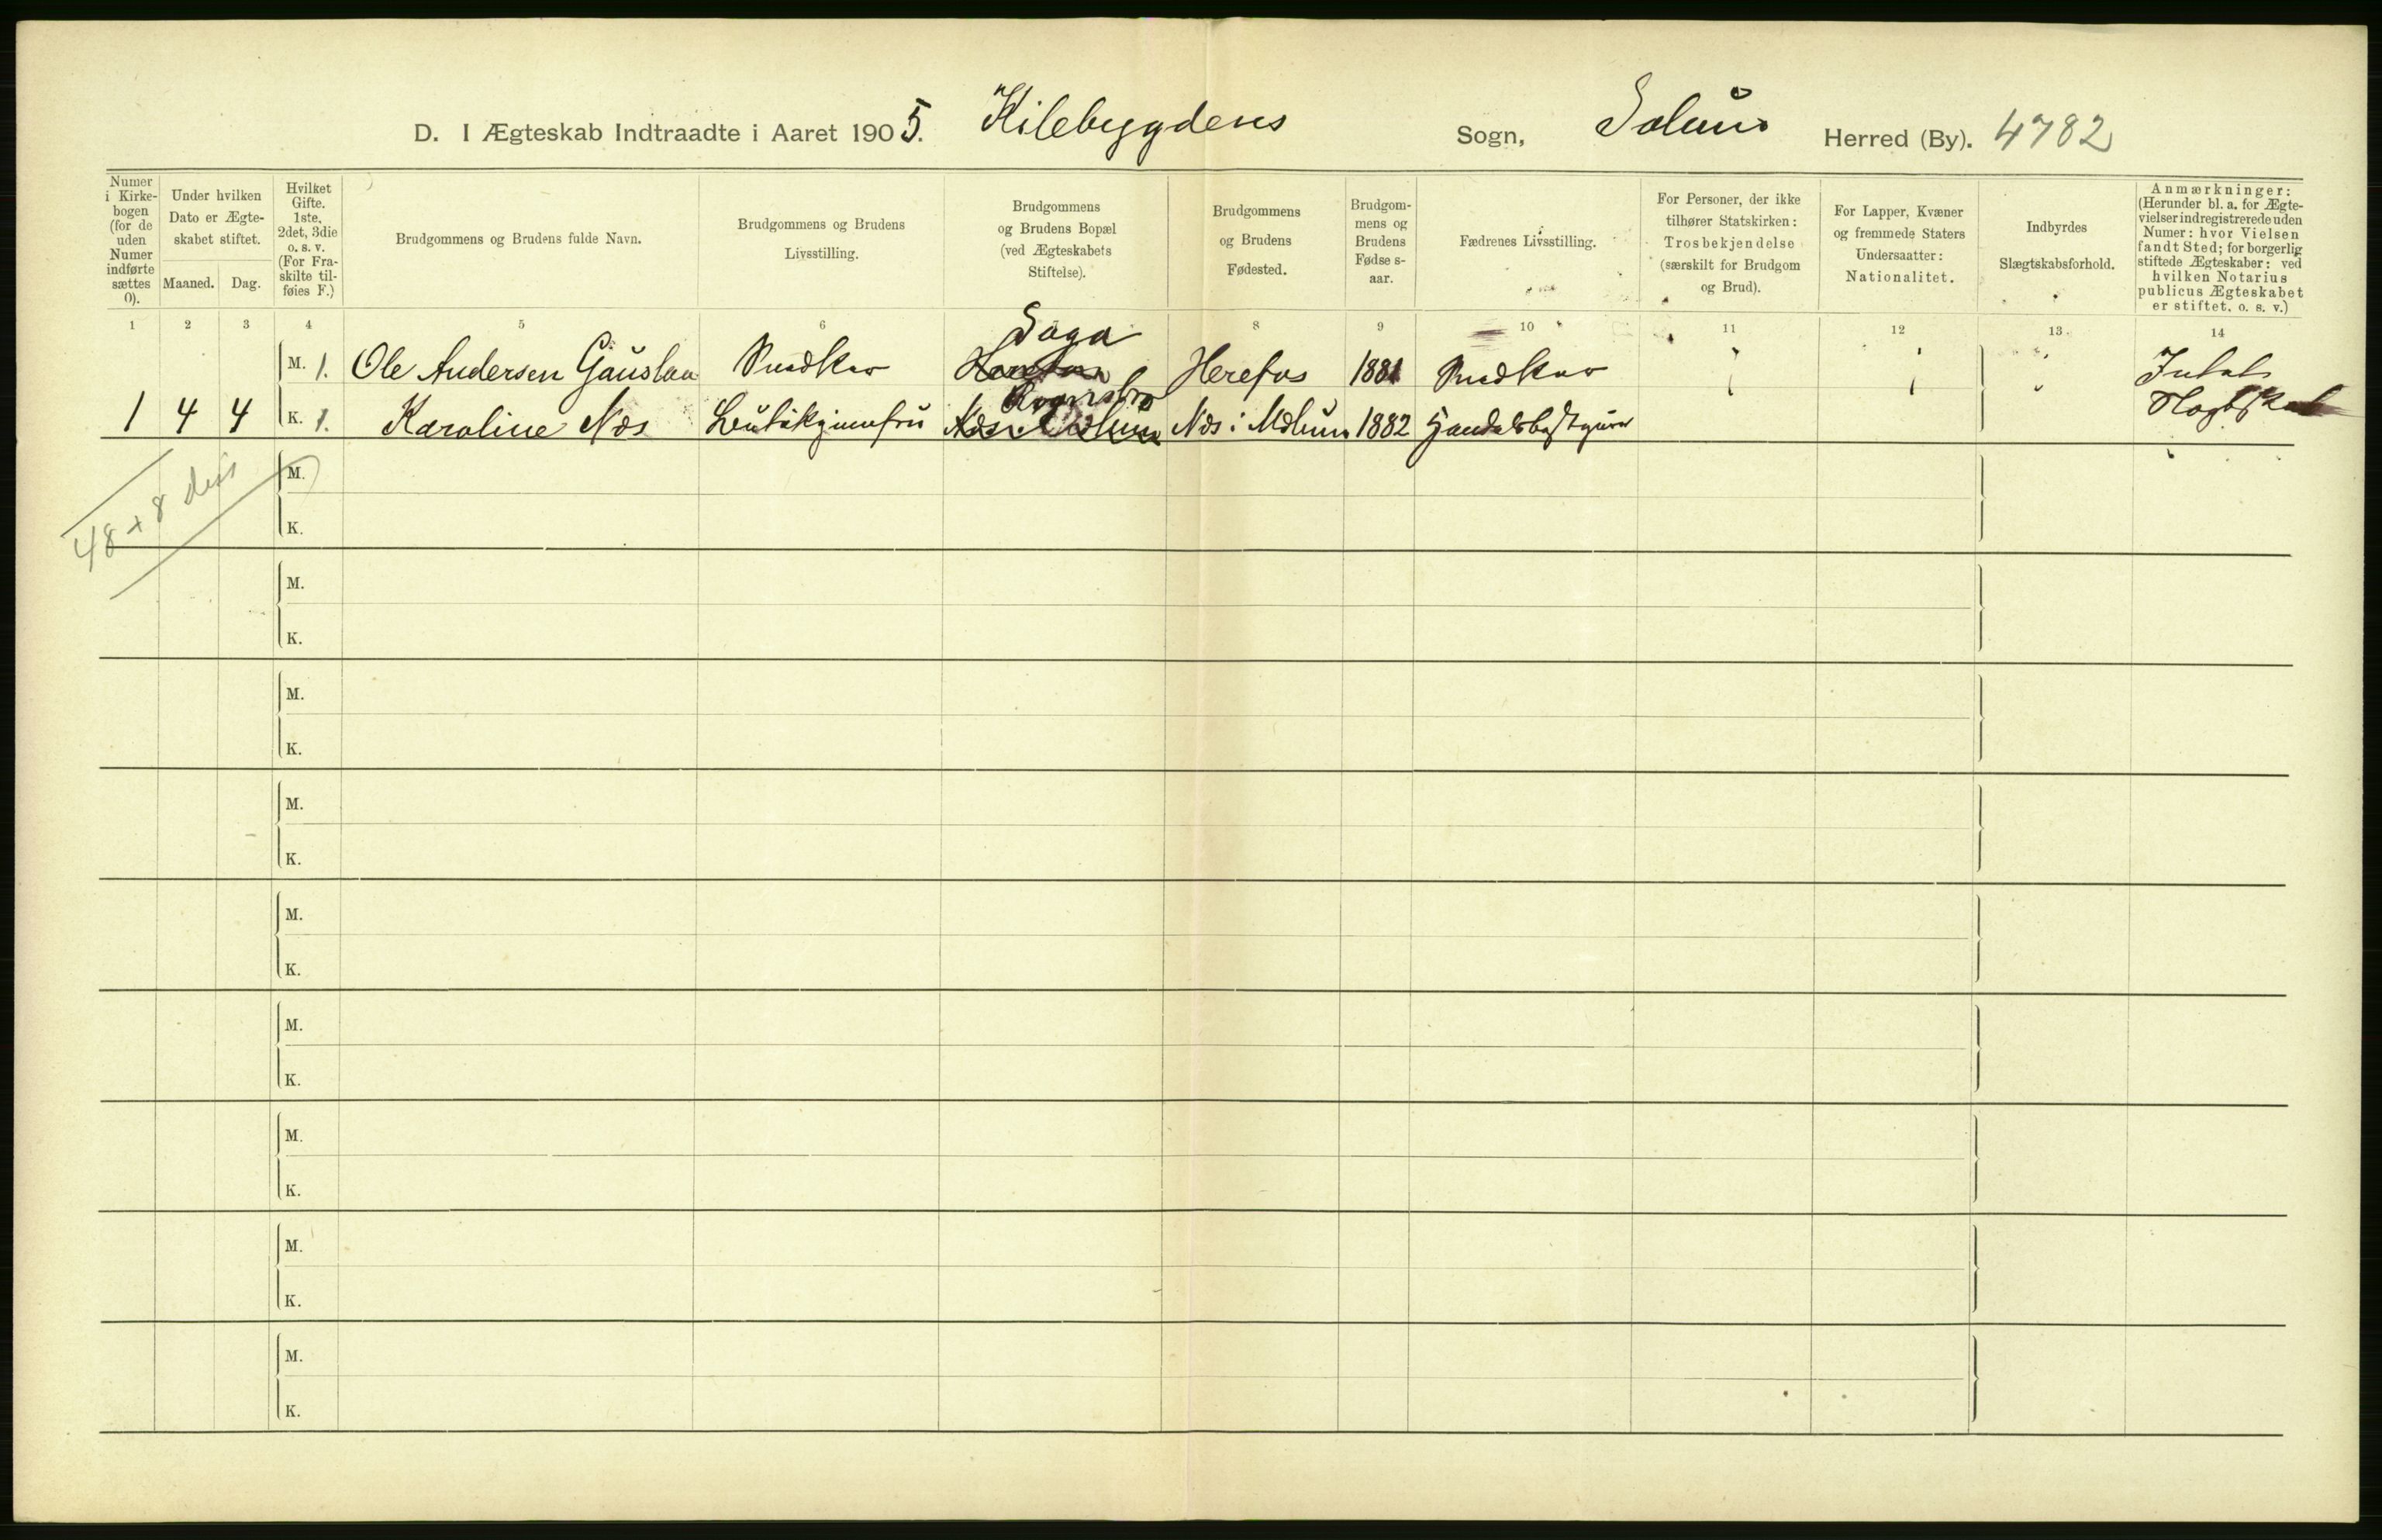 D. I Ægteskab Indtraadte i Aaret 1905. Kilebygdens Sogn, Solum Herred (By). 4782
Numer i Kirkebogen (for de uden Numer indførte sættes 0).
Under hvilken Dato er Ægteskabet stiftet.
Maaned. Dag.
Hvilket Gifte. 1ste, 2det, 3die o. s. v. (For Fraskilte tilføies F.)
Brudgommens og Brudens fulde Navn.
Brudgommens og Brudens Livsstilling.
Brudgommens og Brudens Bopæl (ved Ægteskabets Stiftelse).
Brudgommens og Brudens Fødested.
Brudgommens og Brudens Fødselsaar.
Fædrenes Livsstilling.
For Personer, der ikke tilhører Statskirken: Trosbekjendelse (særskilt for Brudgom og Brud).
For Lapper, Kvæner og fremmede Staters Undersaatter: Nationalitet.
Indbyrdes Slægtskabsforhold.
Anmærkninger: (Herunder bl. a. for Ægtevielser indregistrerede uden Numer: hvor Vielsen fandt Sted; for borgerlig stiftede Ægteskaber: ved hvilken Notarius publicus Ægteskabet er stiftet, o. s. v.)
1 2 3 4 5 6 7 8 9 10 11 12 13 14
M. 1. Ole Andersen Gauslaa Herefos 1881
1 4 4 K. 1. Karoline Næs Næs i Mælum 1882
48 + 8
M.
K.
M.
K.
M.
K.
M.
K.
M.
K.
M.
K.
M.
K.
M.
K.
M.
K.